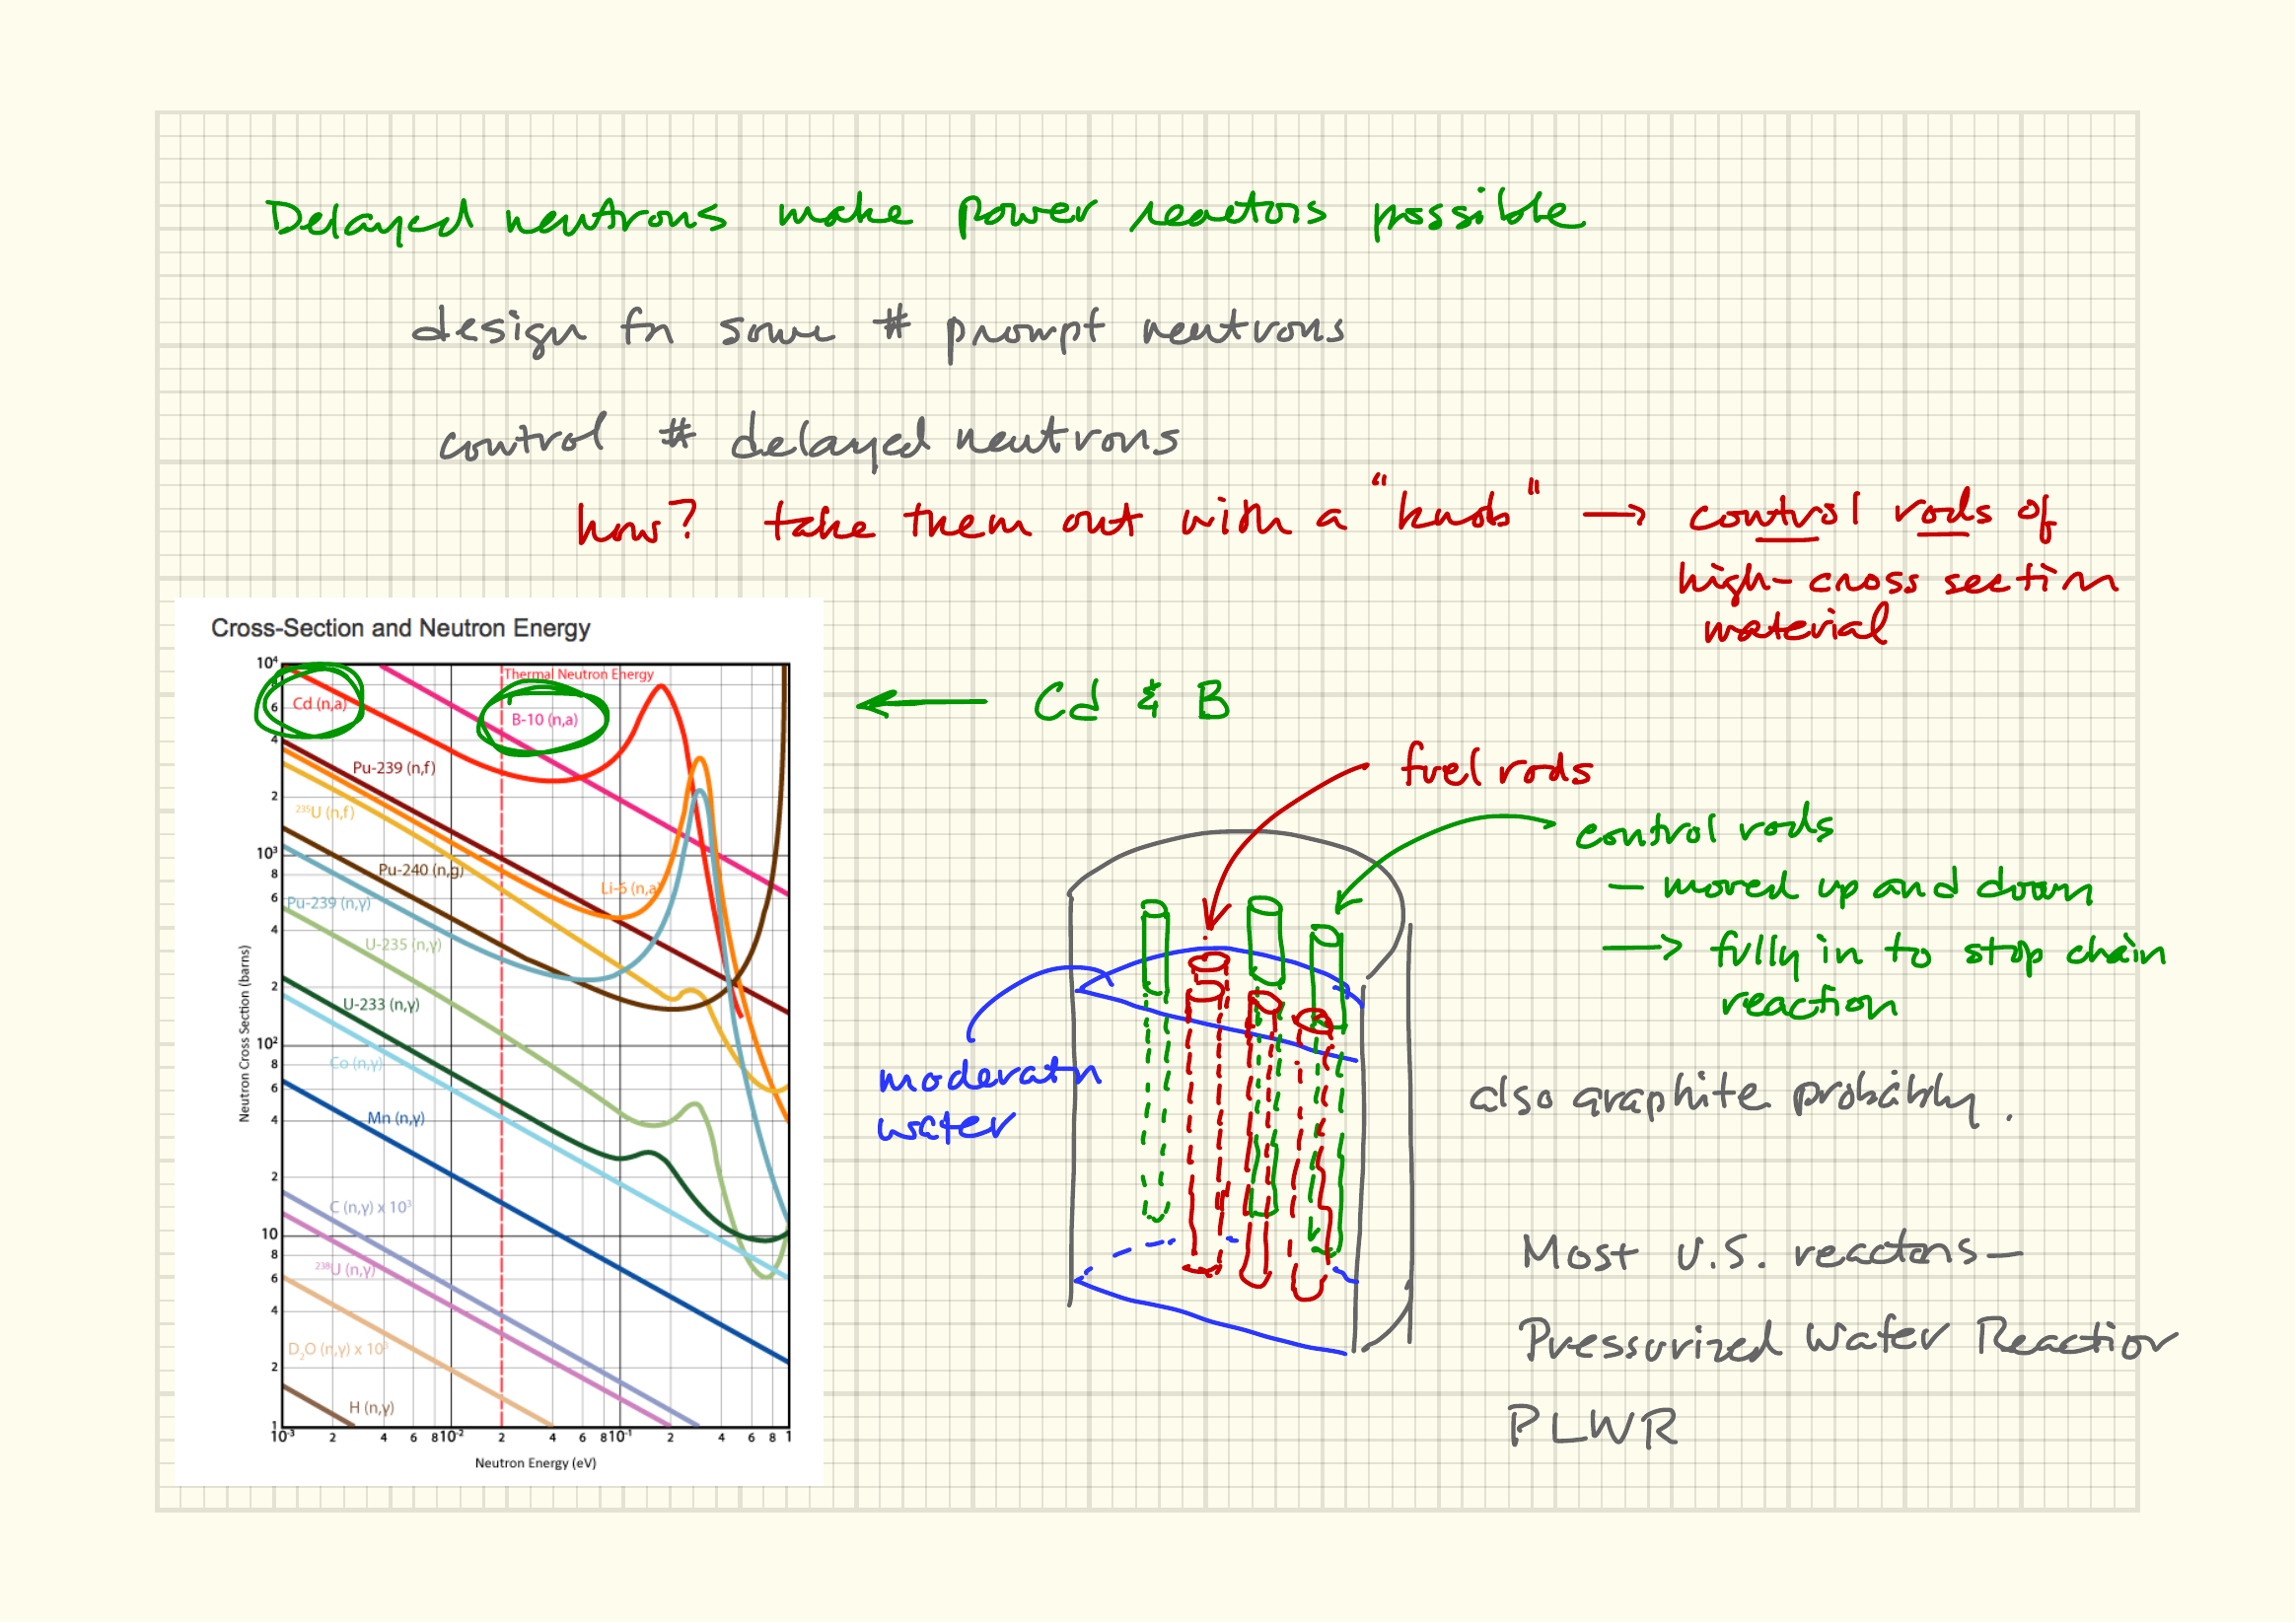 Delayed neutrons make power reactors possible
design for some # prompt neutrons
control # delayed neutrons
how? take them out with a "knob" → control rods of
high-cross section
material
Cross-Section and Neutron Energy
Neutron Cross Section (barns)
10⁴
6
4
2
10³
8
6
4
2
10²
8
6
4
2
10
8
6
4
2
1
Thermal Neutron Energy
Cd (n,a)
B-10 (n,a)
Pu-239 (n,f)
²³⁵U (n,f)
Pu-240 (n,g)
Li-6 (n,a)
Pu-239 (n,γ)
U-235 (n,γ)
U-233 (n,γ)
Co (n,γ)
Mn (n,γ)
C (n,γ) x 10³
²³⁸U (n,γ)
D₂O (n,γ) x 10³
H (n,γ)
10⁻³ 2 4 6 8 10⁻² 2 4 6 8 10⁻¹ 2 4 6 8 1
Neutron Energy (eV)
← Cd & B
fuel rods
control rods
– moved up and down
→ fully in to stop chain
reaction
moderator
water
also graphite probably.
Most U.S. reactors—
Pressurized Water Reactior
PLWR